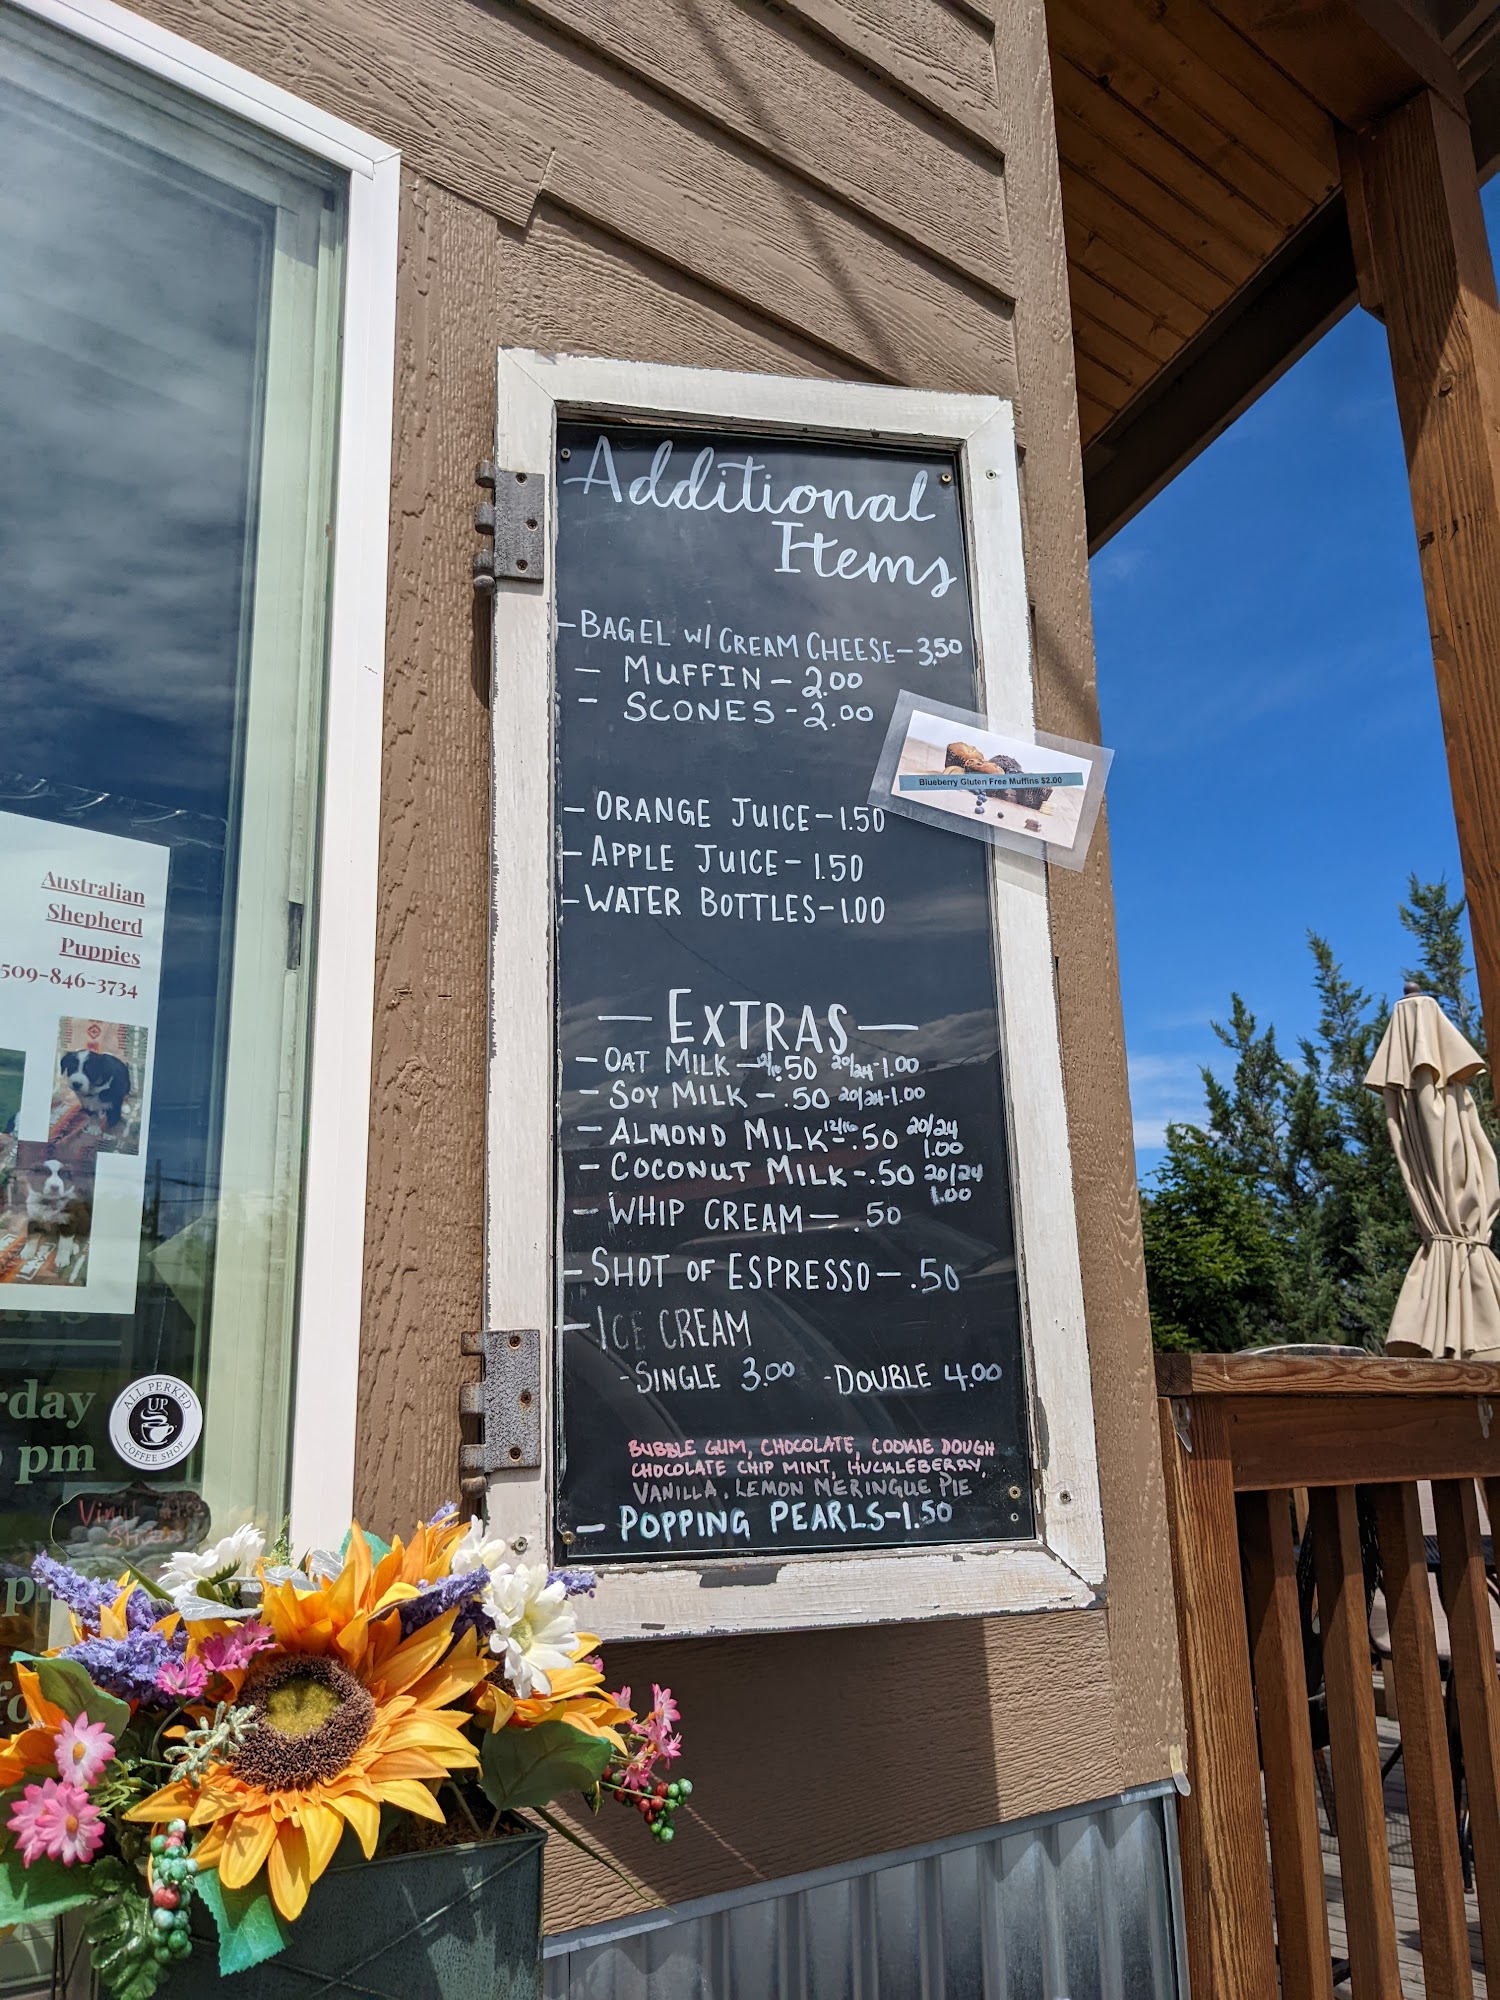 Additional
Items
- BAGEL W/ CREAM CHEESE - 3.50
- MUFFIN - 2.00
- SCONES - 2.00
Blueberry Gluten Free Muffins $2.00
- ORANGE JUICE - 1.50
- APPLE JUICE - 1.50
- WATER BOTTLES - 1.00
- EXTRAS -
- OAT MILK - 12/16 .50 20/24 - 1.00
- SOY MILK - .50 20/24 - 1.00
- ALMOND MILK 12/16 - .50 20/24 1.00
- COCONUT MILK - .50 20/24 1.00
- WHIP CREAM - .50
- SHOT OF ESPRESSO - .50
- ICE CREAM
- SINGLE 3.00 - DOUBLE 4.00
BUBBLE GUM, CHOCOLATE, COOKIE DOUGH
CHOCOLATE CHIP MINT, HUCKLEBERRY,
VANILLA, LEMON MERINGUE PIE
- POPPING PEARLS - 1.50
Australian
Shepherd
Puppies
509-846-3734
rday
pm
ALL PERKED
UP
COFFEE SHOP